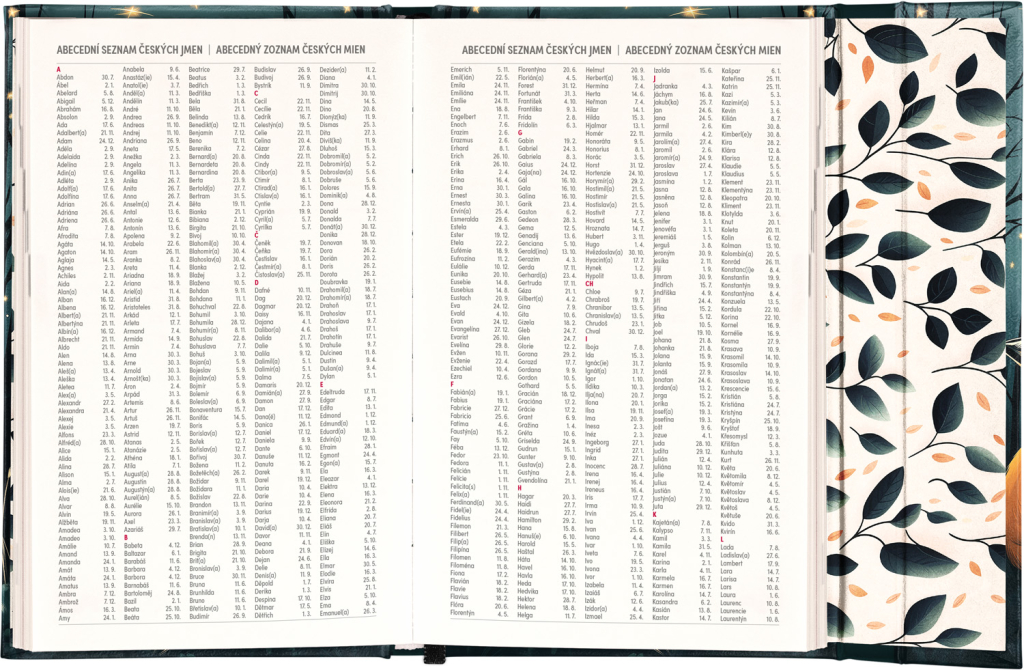 ABECEDNÍ SEZNAM ČESKÝCH JMEN | ABECEDNÝ ZOZNAM ČESKÝCH MIEN
A
Abdon 30. 7.
Ábel 2. 1.
Abelard 5. 8.
Abigail 5. 12.
Abrahám 16. 8.
Absolon 2. 9.
Ada 17. 6.
Adalbert(a) 21. 11.
Adam 24. 12.
Adéla 2. 9.
Adelaida 2. 9.
Adelina 2. 9.
Adin(a) 17. 6.
Adléta 2. 9.
Adolf(a) 17. 6.
Adolfína 17. 6.
Adrian 26. 6.
Adriána 26. 6.
Adriena 26. 6.
Afra 7. 8.
Afrodita 7. 8.
Agáta 14. 10.
Agaton 14. 10.
Aglaja 14. 5.
Agnes 2. 3.
Achiles 2. 11.
Aida 2. 2.
Alan(a) 14. 8.
Alban 16. 12.
Albena 16. 12.
Albert(a) 21. 11.
Albertýna 21. 11.
Albín(a) 16. 12.
Albrecht 21. 11.
Aldo 21. 11.
Alen 14. 8.
Alena 13. 8.
Aleš(a) 13. 4.
Aleška 13. 4.
Aletea 11. 7.
Alex(a) 3. 5.
Alexandr 27. 2.
Alexandra 21. 4.
Alexej 3. 5.
Alexie 3. 5.
Alfons 23. 3.
Alfréd(a) 28. 10.
Alice 15. 1.
Alida 2. 2.
Alina 28. 7.
Alison 15. 1.
Alma 2. 7.
Alois(ie) 21. 6.
Alva 28. 10.
Alvar 8. 8.
Alvin 19. 5.
Alžběta 19. 11.
Amadea 3. 10.
Amadeo 3. 10.
Amálie 10. 7.
Amand 13. 9.
Amanda 24. 1.
Amát 13. 9.
Amáta 24. 1.
Amatus 13. 9.
Ambra 7. 12.
Ambrož 7. 12.
Ámos 16. 3.
Amy 24. 1.
Anabela 9. 6.
Anastáz(ie) 15. 4.
Anatol(ie) 3. 7.
Anděl(a) 11. 3.
Andělín 11. 3.
André 11. 10.
Andrea 26. 9.
Andreas 11. 10.
Andrej 11. 10.
Andriana 26. 9.
Aneta 17. 5.
Anežka 2. 3.
Angela 11. 3.
Angelika 11. 3.
Anika 26. 7.
Anita 26. 7.
Anna 26. 7.
Anselm(a) 21. 4.
Antal 13. 6.
Antonie 12. 6.
Antonín 13. 6.
Apolena 9. 2.
Arabela 22. 6.
Aram 26. 11.
Aranka 8. 2.
Areta 11. 4.
Ariadna 18. 9.
Ariana 18. 9.
Ariel(a) 11. 4.
Aristid 31. 8.
Aristoteles 31. 8.
Arkád 12. 1.
Arleta 17. 7.
Armand 7. 4.
Armida 14. 9.
Armin 7. 4.
Arna 30. 3.
Arne 30. 3.
Arnold 30. 3.
Arnošt(ka) 30. 3.
Áron 2. 4.
Arpád 31. 3.
Artemis 8. 6.
Artur 26. 11.
Artuš 26. 11.
Arzen 19. 7.
Astrid 12. 11.
Atanas 2. 5.
Atanázie 2. 5.
Athéna 18. 1.
Atila 7. 1.
August(a) 28. 8.
Augustin 28. 8.
Augustýn(a) 28. 8.
Aurel(ián) 8. 5.
Aurélie 15. 10.
Aurora 26. 1.
Axel 23. 3.
Azariáš 29. 7.
B
Babeta 4. 12.
Baltazar 6. 1.
Barabáš 11. 6.
Barbara 4. 12.
Barbora 4. 12.
Barnabáš 11. 6.
Bartoloměj 24. 8.
Bazil 2. 1.
Beata 25. 10.
Beáta 25. 10.
Beatrice 29. 7.
Beatus 3. 2.
Bedřich 1. 3.
Bedřiška 1. 3.
Bela 31. 8.
Běla 21. 1.
Belinda 13. 8.
Benedikt(a) 12. 11.
Benjamín 7. 12.
Beno 12. 11.
Berenika 7. 2.
Bernard(a) 20. 8.
Bernardeta 20. 8.
Bernardina 20. 8.
Berta 23. 9.
Bertold(a) 27. 7.
Bertram 31. 5.
Běta 19. 11.
Bianka 21. 1.
Bibiana 2. 12.
Birgita 21. 10.
Bivoj 10. 10.
Blahomil(a) 30. 4.
Blahomír(a) 30. 4.
Blahoslav(a) 30. 4.
Blanka 2. 12.
Blažej 3. 2.
Blažena 10. 5.
Bohdan 9. 11.
Bohdana 11. 1.
Bohuchval 22. 8.
Bohumil 3. 10.
Bohumila 28. 12.
Bohumír(a) 8. 11.
Bohuslav 22. 8.
Bohuslava 7. 7.
Bohuš 3. 10.
Bojan(a) 5. 9.
Bojeslav 5. 9.
Bojislav(a) 5. 9.
Bojmír 5. 9.
Bolemír 6. 9.
Boleslav(a) 6. 9.
Bonaventura 15. 7.
Bonifác 14. 5.
Boris 5. 9.
Borislav(a) 12. 7.
Bořek 12. 7.
Bořislav(a) 12. 7.
Bořivoj 30. 7.
Božena 11. 2.
Božetěch(a) 26. 2.
Božidar 9. 11.
Božidara 11. 1.
Božislav 22. 8.
Brandon 13. 11.
Branimír(a) 3. 9.
Branislav(a) 3. 9.
Bratislav(a) 10. 1.
Brenda(n) 13. 11.
Brian 28. 9.
Brigita 21. 10.
Brit(a) 21. 10.
Bronislav(a) 3. 9.
Bruce 30. 11.
Bruna 11. 6.
Brunhilda 11. 6.
Bruno 11. 6.
Břetislav(a) 10. 1.
Budimír 26. 9.
Budislav 26. 9.
Budivoj 26. 9.
Bystrík 11. 9.
C
Cecil 22. 11.
Cecílie 22. 11.
Cedrik 16. 7.
Celestýn(a) 19. 5.
Celie 22. 11.
Celina 20. 4.
Cézar 27. 8.
Cinda 22. 11.
Cindy 22. 11.
Ctibor(a) 9. 5.
Ctimír 8. 1.
Ctirad(a) 16. 1.
Ctislav(a) 16. 1.
Cyntie 2. 3.
Cyprián 19. 9.
Cyril(a) 5. 7.
Cyrilka 5. 7.
Č
Čeněk 19. 7.
Čeňka 19. 7.
Čestislav 16. 1.
Čestmír(a) 8. 1.
Čistoslav(a) 25. 11.
D
Dafné 10. 11.
Dag 20. 12.
Dagmar 20. 12.
Daisy 16. 11.
Dajana 4. 1.
Dalibor(a) 4. 6.
Dalida 21. 7.
Dalie 5. 10.
Dalila 9. 12.
Dalimil(a) 5. 1.
Dalimír(a) 5. 1.
Dalma 7. 5.
Damaris 20. 12.
Damián(a) 27. 9.
Damon 27. 9.
Dan 17. 12.
Dana(é) 11. 12.
Danica 26. 1.
Daniel 17. 12.
Daniela 9. 9.
Dante 6. 10.
Danuše 11. 12.
Danuta 16. 2.
Darek 9. 11.
Darel 19. 12.
Daria 10. 4.
Darie 10. 4.
Darina 22. 9.
Darius 19. 12.
Darja 10. 4.
David(a) 30. 12.
Davor 11. 11.
Deana 4. 1.
Debora 21. 9.
Dejan 24. 6.
Delie 8. 11.
Denis(a) 11. 9.
Děpold 1. 7.
Derika 1. 3.
Despina 17. 10.
Dětmar 17. 5.
Dětřich 1. 3.
Dezider(a) 11. 2.
Diana 4. 1.
Dimitra 30. 10.
Dimitrij 30. 10.
Dina 14. 5.
Dino 20. 8.
Dionýz(ka) 11. 9.
Dismas 25. 3.
Dita 27. 3.
Diviš(ka) 11. 9.
Dluhoš 15. 3.
Dobromil(a) 5. 2.
Dobromír(a) 5. 2.
Dobroslav(a) 5. 6.
Dobruše 5. 6.
Dolores 15. 9.
Dominik(a) 4. 8.
Dona 28. 12.
Donald 3. 2.
Donalda 7. 7.
Donát(a) 30. 12.
Donika 28. 12.
Donovan 18. 10.
Dora 26. 2.
Dorián 20. 2.
Doris 26. 2.
Dorota 26. 2.
Doubravka 19. 1.
Drahomil(a) 18. 7.
Drahomír(a) 18. 7.
Drahoň 17. 1.
Drahoslav 17. 1.
Drahoslava 9. 7.
Drahoš 17. 1.
Drahotín 17. 1.
Drahuše 9. 7.
Dulcinea 11. 6.
Dustin 9. 4.
Dušan(a) 9. 4.
Dylan 5. 1.
E
Edeltruda 17. 11.
Edgar 8. 7.
Edita 13. 1.
Edmond 1. 12.
Edmund 1. 12.
Eduard(a) 18. 3.
Edvin(a) 12. 10.
Efraim 28. 1.
Egmont 24. 4.
Egon(a) 15. 7.
Ela 16. 3.
Eleazar 4. 1.
Elektra 13. 12.
Elena 16. 3.
Eleonora 21. 2.
Elfrída 2. 8.
Eliana 20. 7.
Eliáš 20. 7.
Elin 4. 7.
Eliška 5. 10.
Elizej 14. 6.
Ella 16. 3.
Elmar 30. 5.
Elodie 16. 3.
Elvíra 25. 8.
Elvis 21. 1.
Elza 5. 10.
Ema 8. 4.
Emanuel(a) 26. 3.
ABECEDNÍ SEZNAM ČESKÝCH JMEN | ABECEDNÝ ZOZNAM ČESKÝCH MIEN
Emerich 5. 11.
Emil(ián) 22. 5.
Emila 24. 11.
Emiliána 24. 11.
Emílie 24. 11.
Ena 18. 8.
Engelbert 7. 11.
Enoch 7. 6.
Erazim 2. 6.
Erazmus 2. 6.
Erhard 8. 1.
Erich 26. 10.
Erik 26. 10.
Erika 2. 4.
Erina 16. 4.
Erna 30. 1.
Ernest 30. 3.
Ernesta 30. 1.
Ervín(a) 25. 4.
Esmeralda 29. 6.
Estela 4. 3.
Ester 19. 12.
Etela 22. 2.
Eufémie 18. 9.
Eufrozina 11. 2.
Eulálie 10. 12.
Eunika 20. 10.
Eusebie 14. 8.
Eusebius 14. 8.
Eustach 20. 9.
Eva 24. 12.
Evald 4. 10.
Evan 24. 12.
Evangelína 27. 12.
Evarist 26. 10.
Evelína 29. 8.
Evžen 10. 11.
Evženie 22. 4.
Ezechiel 10. 4.
Ezra 12. 6.
F
Fabián(a) 19. 1.
Fabius 19. 1.
Fabricie 27. 12.
Fabricio 25. 6.
Fatima 4. 6.
Faustýn(a) 15. 2.
Fay 5. 10.
Féba 13. 12.
Fedor 23. 10.
Fedora 11. 1.
Felicián 1. 11.
Felície 1. 11.
Felicita(s) 1. 11.
Felix(a) 1. 11.
Ferdinand(a) 30. 5.
Fidel(ie) 24. 4.
Fidelius 24. 4.
Fileman 21. 3.
Filibert 26. 5.
Filip(a) 26. 5.
Filipína 26. 5.
Filomen 11. 8.
Filoména 11. 8.
Fiona 17. 2.
Flavián 18. 2.
Flavie 18. 2.
Flavius 18. 2.
Flóra 20. 6.
Florentýn 4. 5.
Florentýna 20. 6.
Florián(a) 4. 5.
Forest 31. 12.
Fortunát 31. 3.
František 4. 10.
Františka 9. 3.
Frída 2. 8.
Fridolín 6. 3.
G
Gabin 19. 2.
Gabriel 24. 3.
Gabriela 8. 3.
Gaius 24. 12.
Gaja(na) 24. 12.
Gál 16. 10.
Gala 16. 10.
Galina 16. 10.
Garik 23. 4.
Gaston 6. 2.
Gedeon 28. 3.
Gema 12. 5.
Genadij 13. 6.
Genciana 5. 10.
Gerald(ina) 13. 10.
Gerazim 4. 3.
Gerda 17. 11.
Gerhard(a) 23. 4.
Gertruda 17. 11.
Géza 21. 1.
Gilbert(a) 4. 2.
Gina 7. 9.
Gita 10. 6.
Gizela 18. 2.
Gleb 24. 7.
Glen 24. 7.
Glorie 12. 2.
Gorana 29. 2.
Gorazd 17. 7.
Gordana 9. 9.
Gordon 10. 5.
Gothard 5. 5.
Gracián 18. 12.
Graciána 17. 2.
Grácie 17. 2.
Grant 6. 9.
Gražina 1. 4.
Gréta 10. 6.
Griselda 24. 9.
Gudrun 15. 1.
Gunter 9. 10.
Gustav(a) 2. 8.
Gustýna 2. 8.
Gvendolína 21. 1.
H
Hagar 20. 3.
Haidi 27. 7.
Haidrun 27. 7.
Hamilton 29. 2.
Hana 15. 8.
Hanuš(e) 6. 10.
Harold 15. 5.
Haštal 26. 3.
Háta 14. 10.
Havel 16. 10.
Havla 16. 10.
Heda 17. 10.
Hedvika 17. 10.
Hektor 28. 7.
Helena 18. 8.
Helga 11. 7.
Helmut 20. 9.
Herbert(a) 16. 3.
Hermína 7. 4.
Herta 14. 6.
Heřman 7. 4.
Hilar 14. 1.
Hilda 15. 3.
Hjalmar 13. 1.
Homér 22. 11.
Honoráta 9. 5.
Honorius 8. 1.
Horác 3. 5.
Horst 31. 12.
Hortenzie 24. 10.
Horymír(a) 29. 2.
Hostimil(a) 21. 5.
Hostimír 21. 5.
Hostislav(a) 21. 5.
Hostivít 7. 7.
Hovard 14. 5.
Hroznata 14. 7.
Hubert 3. 11.
Hugo 1. 4.
Hvězdoslav(a) 30. 10.
Hyacint(a) 17. 7.
Hynek 1. 2.
Hypolit 13. 8.
CH
Chloe 9. 7.
Chrabroš 19. 7.
Chranibor 13. 5.
Chranislav(a) 13. 5.
Chrudoš 23. 1.
Chval 30. 12.
I
Iboja 7. 8.
Ida 15. 3.
Ignác(ie) 31. 7.
Ignát(a) 31. 7.
Igor 1. 10.
Ildika 10. 3.
Ilja(na) 20. 7.
Ilona 20. 1.
Ilsa(ra) 20. 1.
Ima 20. 9.
Imesa 2. 3.
Inéz 2. 3.
Ingeborg 27. 1.
Ingrid 27. 1.
Inka 27. 1.
Inocenc 28. 7.
Irena 16. 4.
Irenej 16. 4.
Ireneus 16. 4.
Iris 17. 7.
Irma 10. 9.
Irvin 25. 4.
Ita 1. 12.
Iva 1. 12.
Ivan 25. 6.
Ivana 4. 4.
Ivar 1. 10.
Iveta 7. 6.
Ivo 19. 5.
Ivona 23. 3.
Ivor 1. 10.
Izabela 11. 4.
Izaiáš 6. 7.
Izák 12. 6.
Izidor(a) 4. 4.
Izmael 25. 4.
Izolda 15. 6.
J
Jadranka 4. 3.
Jáchym 16. 8.
Jakub(ka) 25. 7.
Jan 24. 6.
Jana 24. 5.
Jarmil 2. 6.
Jarmila 4. 2.
Jarolím(a) 27. 4.
Jaromil 2. 6.
Jaromír(a) 24. 9.
Jaroslav 27. 4.
Jaroslava 1. 7.
Jasmína 1. 2.
Jasna 12. 8.
Jasněna 12. 8.
Jasoň 12. 8.
Jelena 18. 8.
Jenifer 3. 1.
Jenovéfa 3. 1.
Jeremiáš 1. 5.
Jerguš 3. 8.
Jeronym 30. 9.
Jesika 2. 11.
Jiljí 1. 9.
Jimram 30. 9.
Jindřich 15. 7.
Jindřiška 4. 9.
Jiří 24. 4.
Jiřina 15. 2.
Jitka 5. 12.
Job 10. 5.
Joel 10. 5.
Johana 21. 8.
Johanka 21. 8.
Jolana 15. 9.
Jolanta 15. 9.
Jonáš 27. 9.
Jonatan 24. 6.
Jordan(a) 13. 2.
Jorga 15. 2.
Jorika 15. 2.
Josef(a) 19. 3.
Josefína 19. 3.
Jošt 9. 6.
Jozue 4. 1.
Juda 28. 10.
Judita 29. 12.
Julián 12. 4.
Juliána 10. 12.
Julie 10. 12.
Julius 12. 4.
Justián 7. 10.
Justýn(a) 7. 10.
Juta 29. 12.
K
Kajetán(a) 7. 8.
Kalypso 7. 11.
Kamil 3. 3.
Kamila 31. 5.
Karel 4. 11.
Karina 2. 1.
Karla 4. 11.
Karmela 16. 7.
Karmen 16. 7.
Karolína 14. 7.
Kasandra 6. 2.
Kasián 13. 8.
Kastor 14. 7.
Kašpar 6. 1.
Kateřina 25. 11.
Katrin 25. 11.
Kazi 5. 3.
Kazimír(a) 5. 3.
Kevin 3. 6.
Kilián 8. 7.
Kim 30. 8.
Kimberl(e)y 30. 8.
Kira 28. 2.
Klára 12. 8.
Klarisa 12. 8.
Klaudie 5. 5.
Klaudius 5. 5.
Klement 23. 11.
Klementýna 23. 11.
Kleopatra 20. 10.
Kliment 23. 11.
Klotylda 3. 6.
Knut 20. 1.
Koleta 20. 11.
Kolín 6. 12.
Kolman 13. 10.
Kolombín(a) 20. 5.
Konrád 26. 11.
Konstanc(i)e 8. 4.
Konstantin 19. 9.
Konstantýn 19. 9.
Konstantýna 8. 4.
Konzuela 13. 5.
Kordula 22. 10.
Korina 22. 10.
Kornel 16. 9.
Kornélie 16. 9.
Kosma 27. 9.
Krasava 10. 9.
Krasomil 14. 10.
Krasomila 10. 9.
Krasoslav 14. 10.
Krasoslava 10. 9.
Krescencie 15. 6.
Kristián 5. 8.
Kristiána 24. 7.
Kristýna 24. 7.
Kryšpín 25. 10.
Kryštof 18. 9.
Křesomysl 12. 3.
Křišťan 5. 8.
Kunhuta 3. 3.
Kurt 26. 11.
Květa 20. 6.
Květomila 8. 12.
Květomír 4. 5.
Květoslav 4. 5.
Květoslava 8. 12.
Květoš 4. 5.
Květuše 20. 6.
Kvido 31. 3.
Kvirin 16. 6.
L
Lada 7. 8.
Ladislav(a) 27. 6.
Lambert 17. 9.
Lara 14. 7.
Larisa 14. 7.
Lars 10. 8.
Laura 1. 6.
Laurenc 10. 8.
Laurencie 1. 6.
Laurentýn 10. 8.